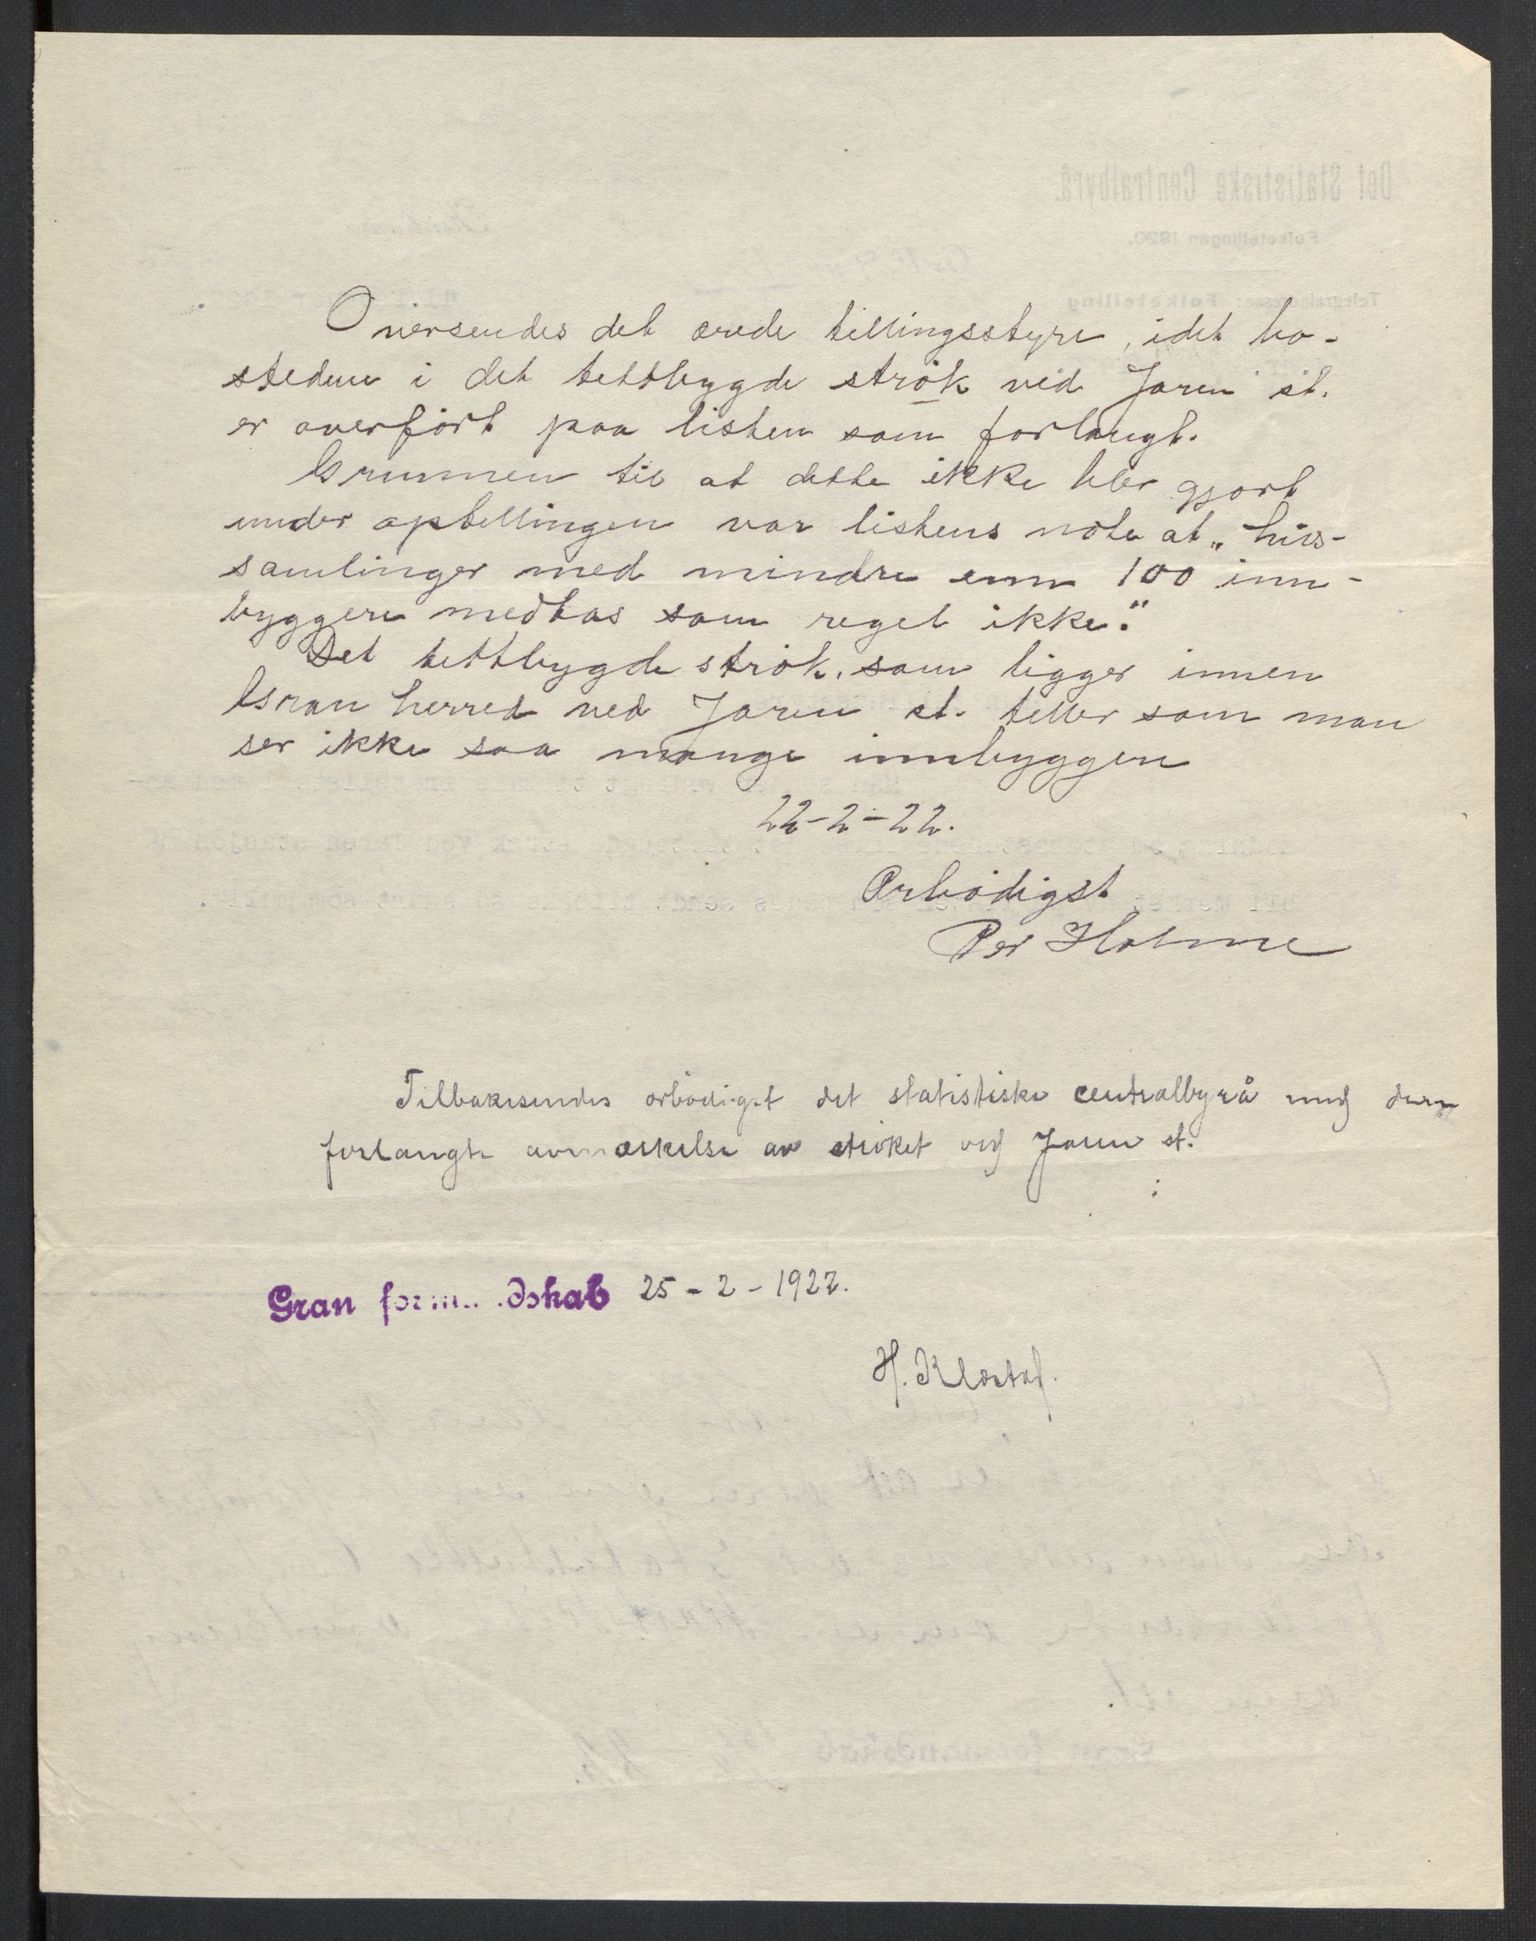 Oversendes det ærede tellingsstyre, idet bo-
stedene i det tettbygde strøk ved Jaren st.
er overført paa listen som forlangt.
Grunnen til at dette ikke blev gjort
under optellingen var listens note at „hus-
samlinger med mindre enn 100 inn-
byggere medtas som regel ikke."
Det tettbygde strøk, som ligger innen
Gran herred ved Jaren st. teller som man
ser ikke saa mange innbyggere
22-2-22.
Ærbødigst
Per Holme
Tilbakesendes ærbødigst det statistiske centralbyrå med den
forlangte avmærkelse av strøket ved Jaren st.
Gran formandskab 25-2-1922.
H.
Det Statistiske Centralbyrå.
Folketellingen 1920.
Telegramadresse: Folketelling